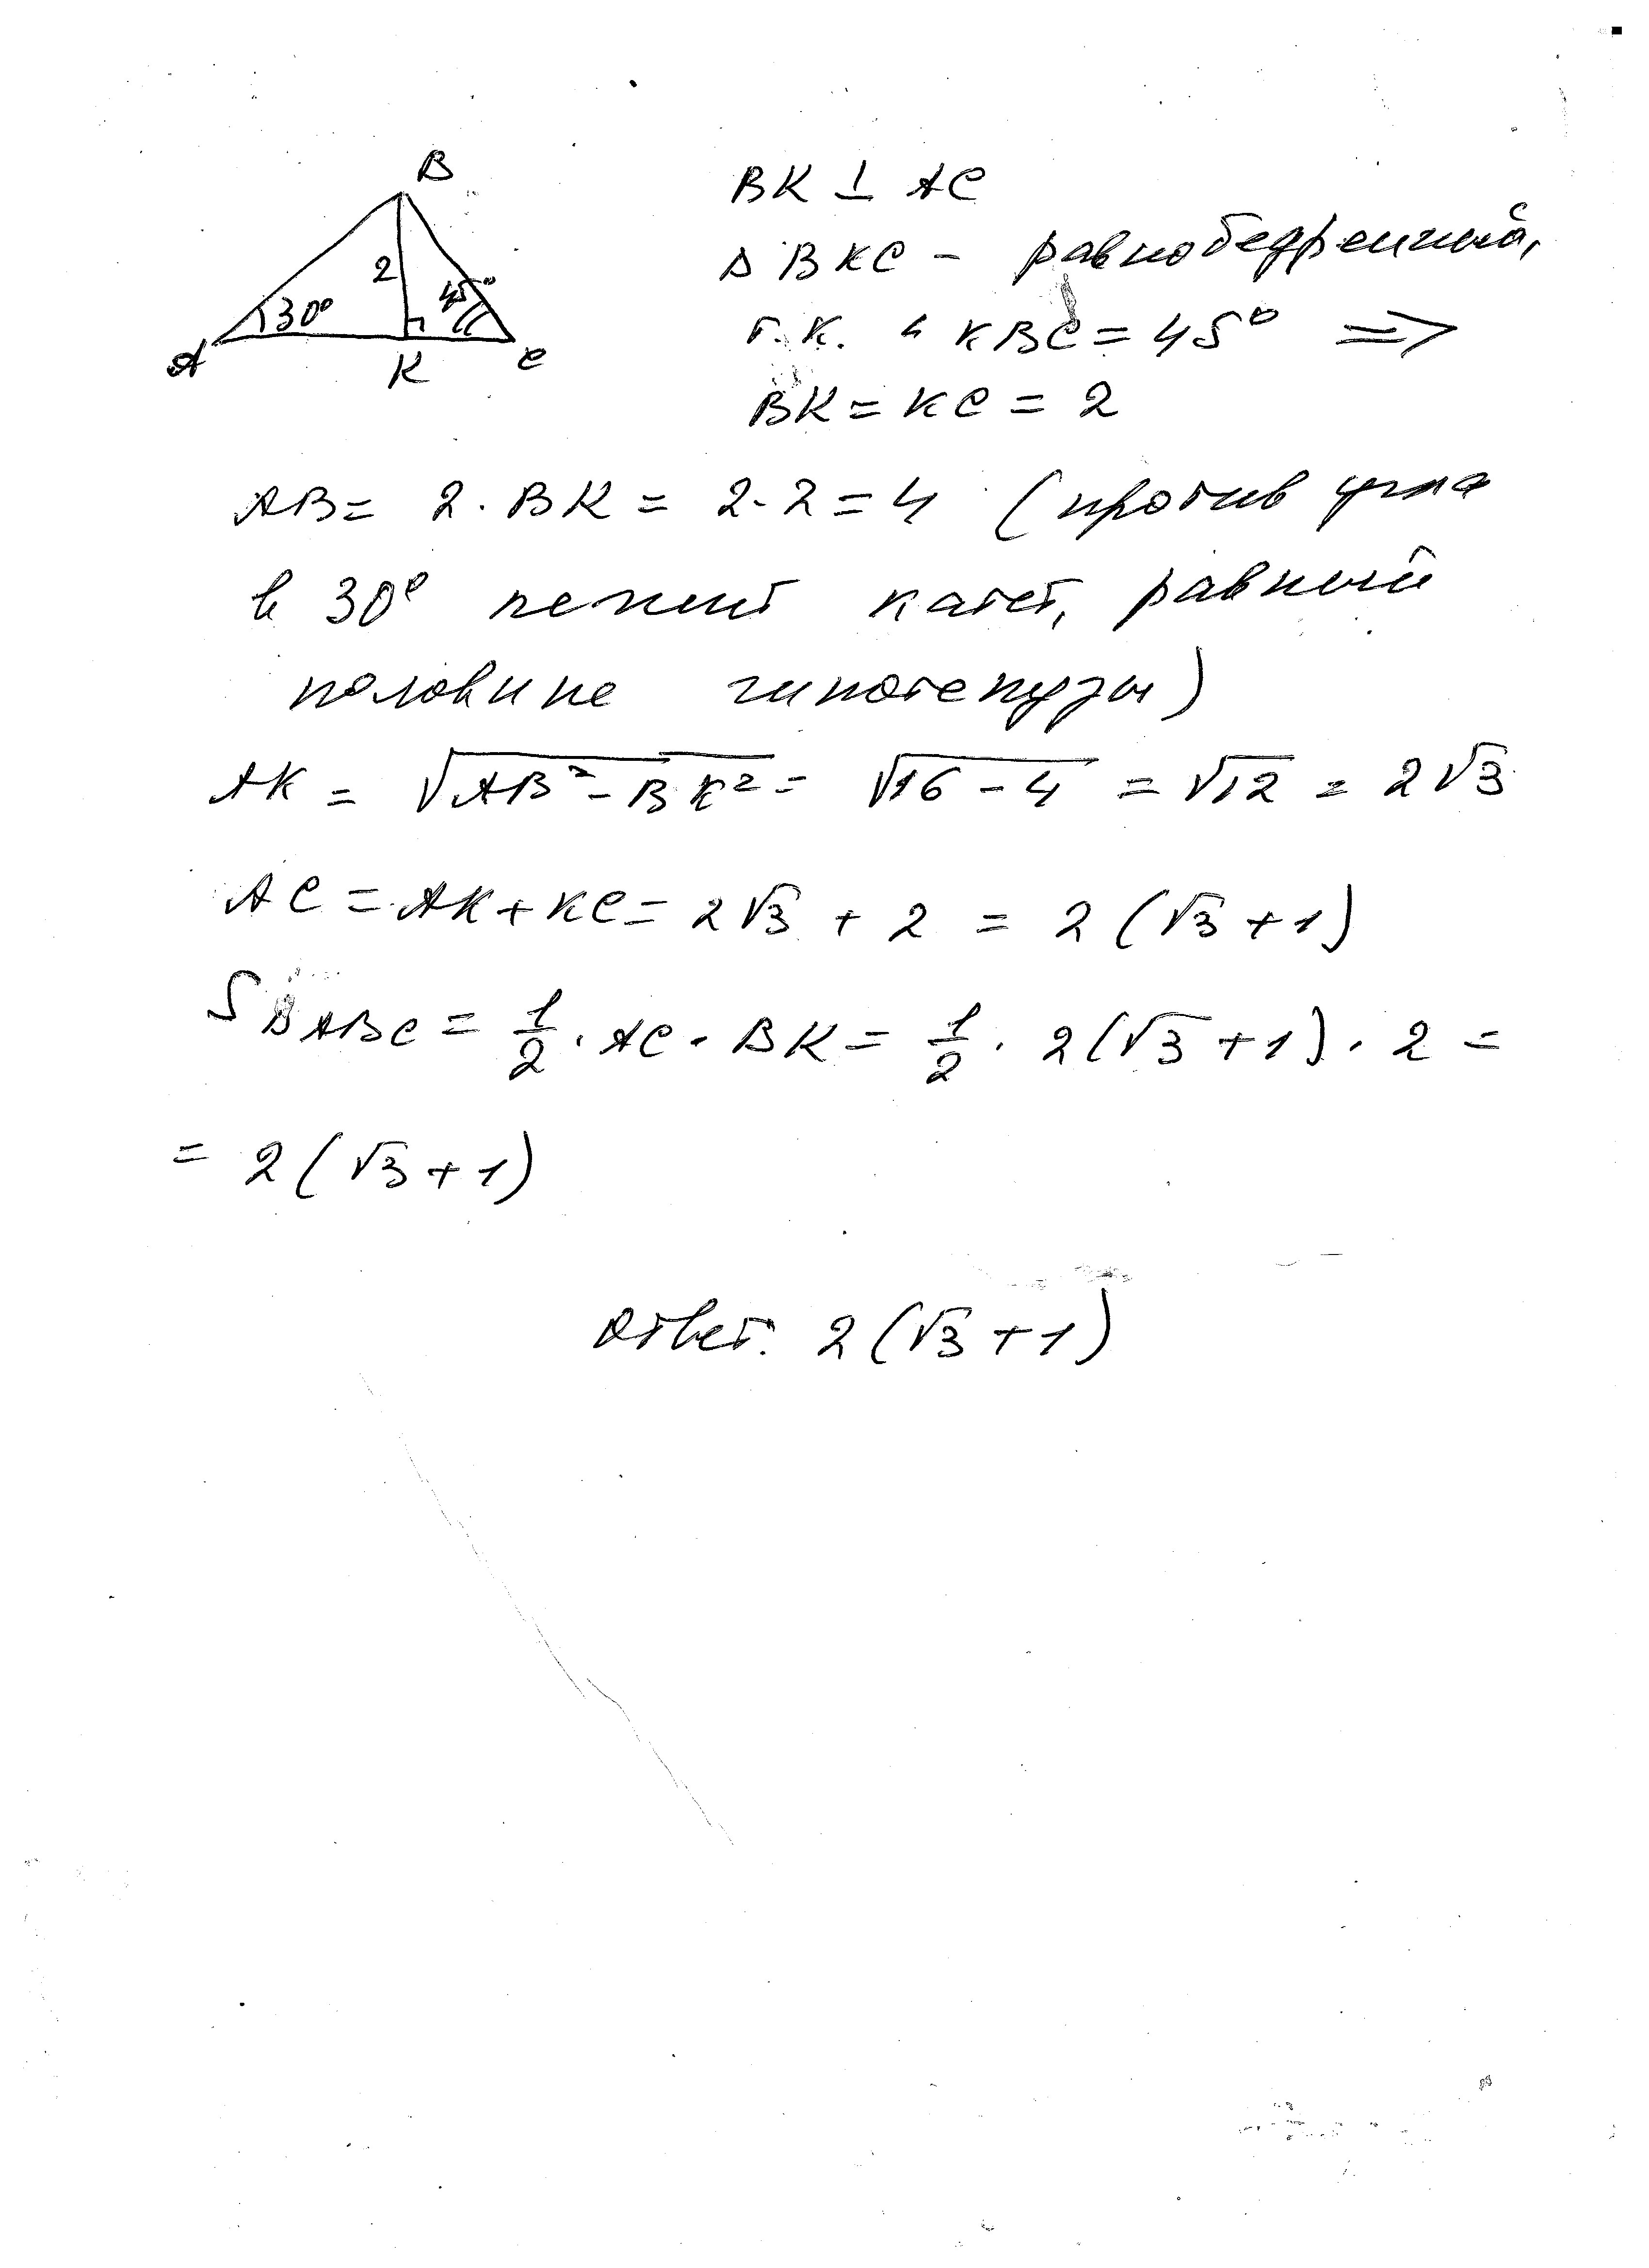 B
2
30°
45°
A
K
C
BK ⊥ AC
Δ BKC – равнобедренный,
т.к. ∠ KBC = 45° =>
BK = KC = 2
AB = 2 · BK = 2 · 2 = 4 (против угла
в 30° лежит катет, равный
половине гипотенузы)
AK = √(AB² – BK²) = √(16 – 4) = √12 = 2√3
AC = AK + KC = 2√3 + 2 = 2(√3 + 1)
S Δ ABC = 1/2 · AC · BK = 1/2 · 2(√3 + 1) · 2 =
= 2(√3 + 1)
Ответ. 2(√3 + 1)